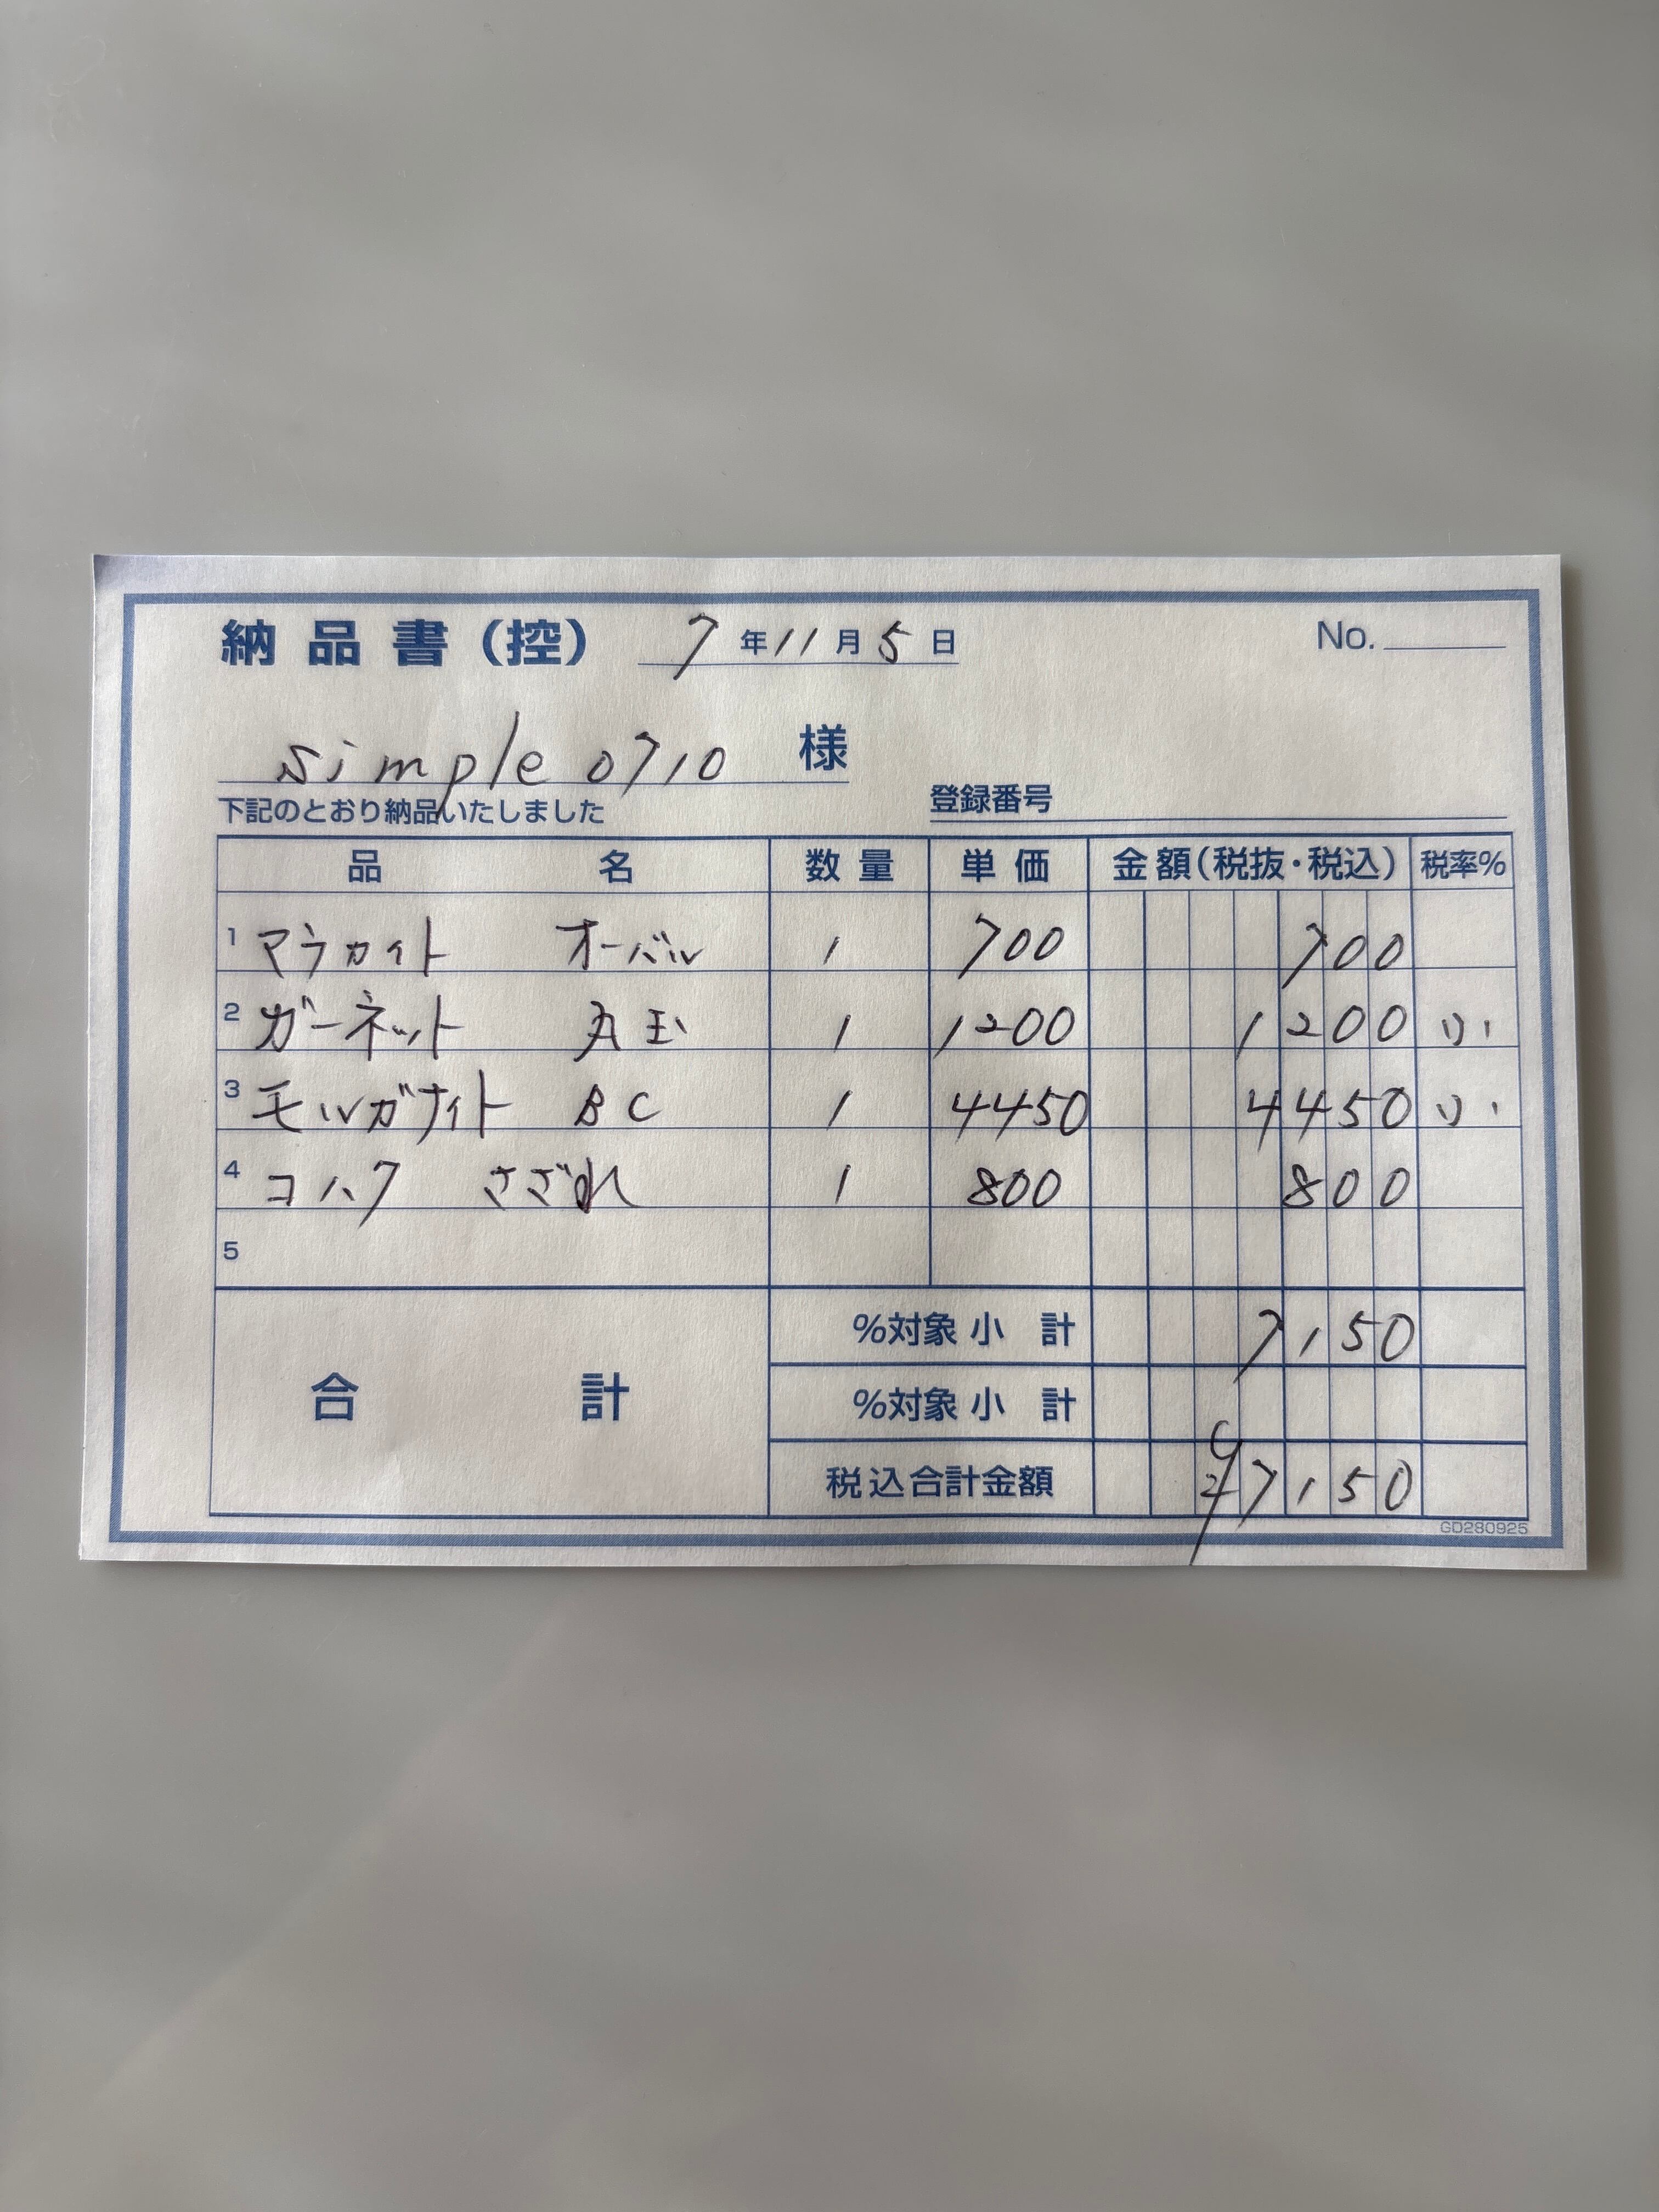 納品書(控) 7年11月5日 No.
simple0710 様
下記のとおり納品いたしました 登録番号
品名 数量 単価 金額(税抜・税込) 税率%
1 マラカイト オーバル 1 700 700
2 ガーネット 丸玉 1 1200 1200
3 モルガナイト BC 1 4450 4450
4 コハク さざれ 1 800 800
5
合計 %対象小計 7150
%対象小計
税込合計金額 ¥7150
GD280925